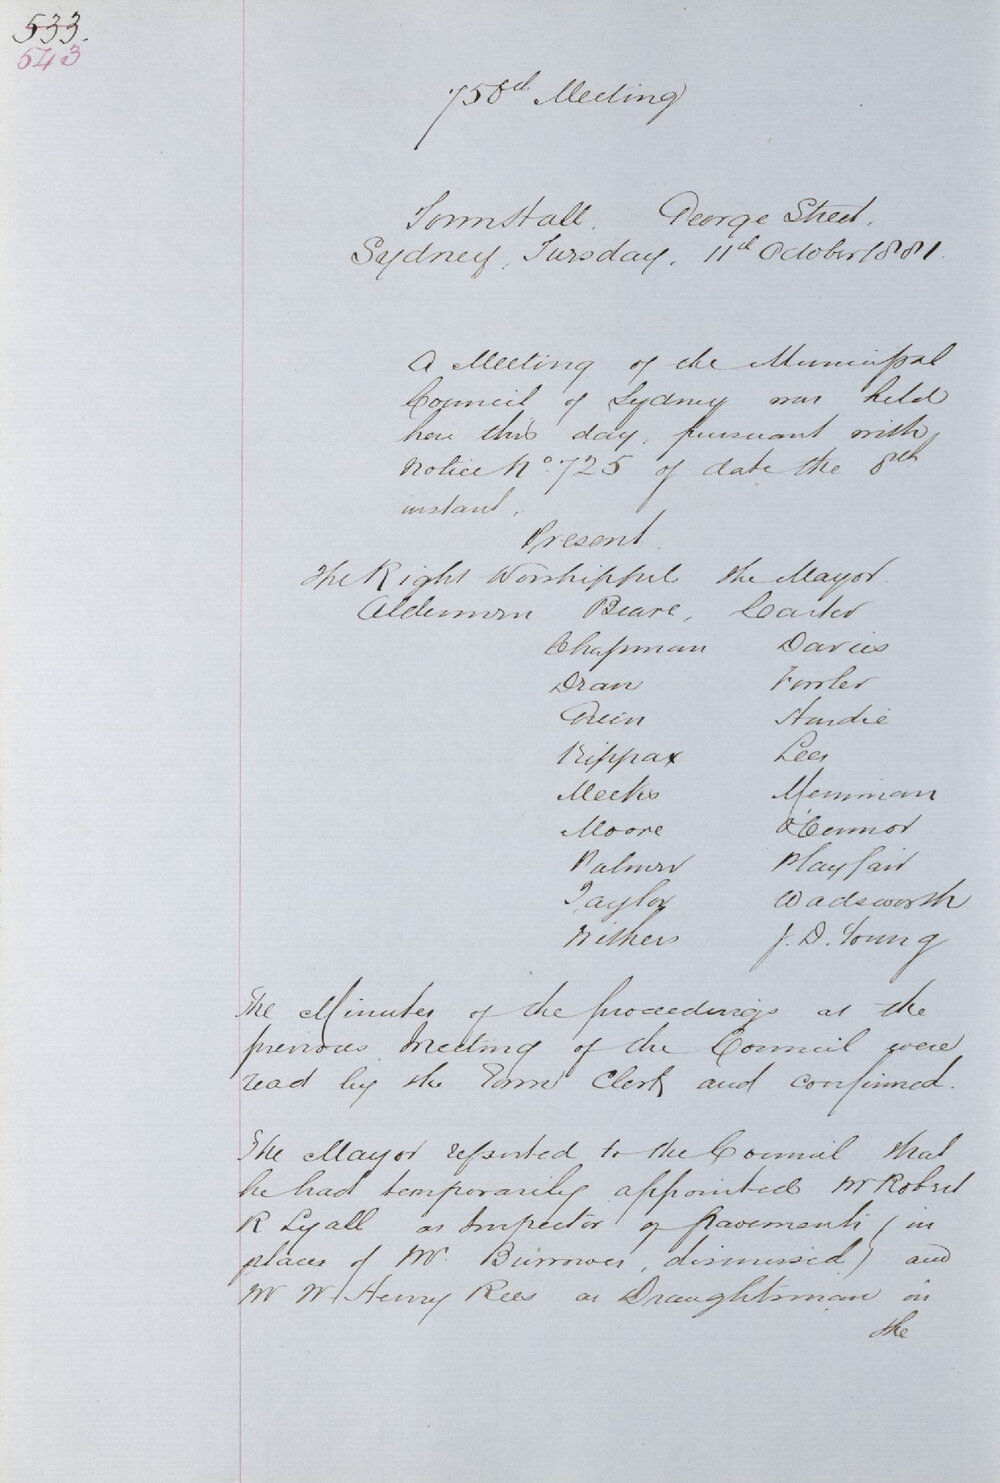 533.
543
758th Meeting
Town Hall. George Street.
Sydney, Tuesday, 11th October 1881.
A Meeting of the Municipal
Council of Sydney was held
here this day, pursuant with
Notice No. 725 of date the 8th
instant.
Present.
The Right Worshipful the Mayor
Aldermen Beare, Carter
Chapman Davies
Dean Fowler
Green Hardie
Kippax Lees
Meeks Merriman
Moore O'Connor
Palmer Playfair
Taylor Wadsworth
Withers J. D. Young
The Minutes of the proceedings at the
previous Meeting of the Council were
read by the Town Clerk and confirmed.
The Mayor reported to the Council that
he had temporarily appointed Mr Robert
R Lyall as Inspector of Pavements (in
place of Mr. Burrowes, dismissed) and
Mr W. Henry Rees as Draughtsman in
the